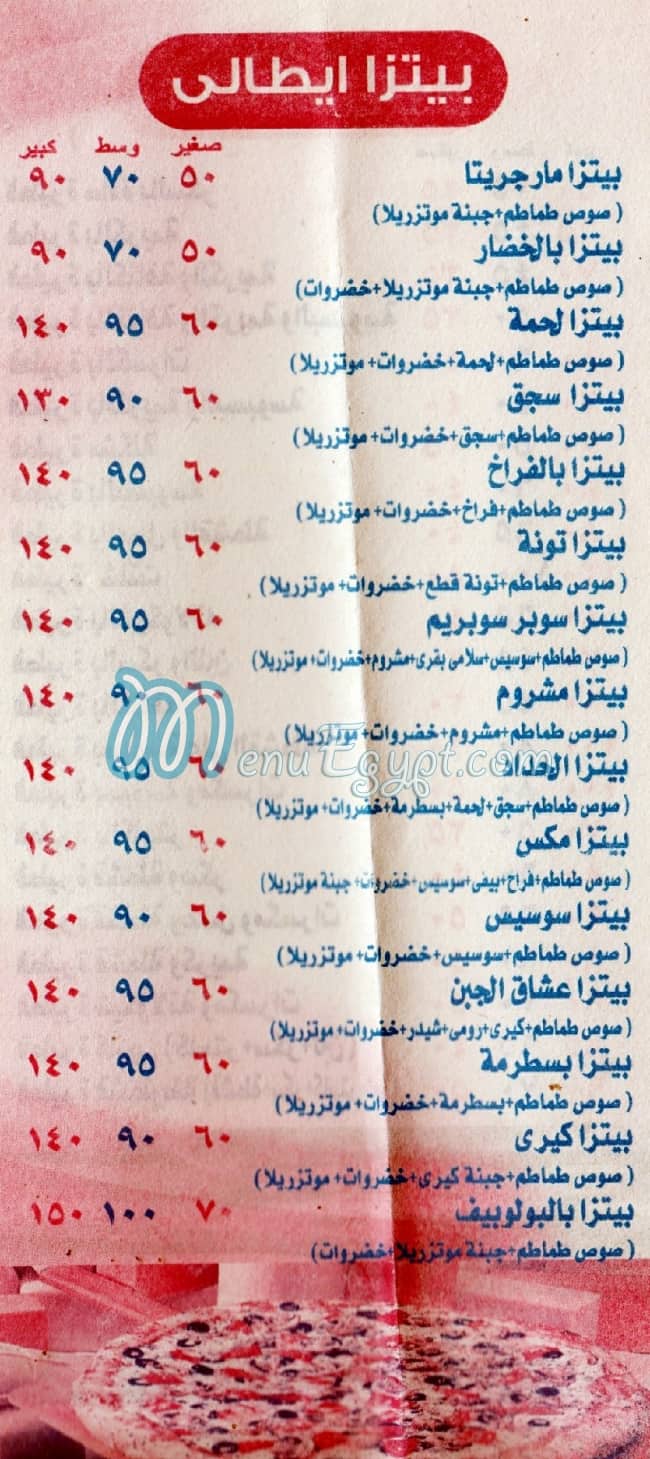 بيتزا ايطالى
صغير وسط كبير
بيتزا مارجريتا ٥٠ ٧٠ ٩٠
( صوص طماطم+جبنة موتزريلا)
بيتزا بالخضار ٥٠ ٧٠ ٩٠
( صوص طماطم+ جبنة موتزريلا+خضروات)
بيتزا لحمة ٦٠ ٩٥ ١٤٠
( صوص طماطم+ لحمة+خضروات+ موتزريلا)
بيتزا سجق ٦٠ ٩٠ ١٣٠
( صوص طماطم+سجق+خضروات+ موتزريلا)
بيتزا بالفراخ ٦٠ ٩٥ ١٤٠
( صوص طماطم+فراخ+خضروات+ موتزريلا)
بيتزا تونة ٦٠ ٩٥ ١٤٠
( صوص طماطم+ تونة قطع+خضروات+ موتزريلا)
بيتزا سوبر سوبريم ٦٠ ٩٥ ١٤٠
( صوص طماطم+ سوسيس+سلامى بقرى+مشروم+خضروات+ موتزريلا)
بيتزا مشروم ٦٠ ٩٠ ١٤٠
( صوص طماطم+ مشروم+خضروات+ موتزريلا)
MenuEgypt.com
بيتزا الحداد ٦٠ ٩٥ ١٤٠
( صوص طماطم+ سجق+لحمة+بسطرمة+خضروات+ موتزريلا)
بيتزا مكس ٦٠ ٩٥ ١٤٠
( صوص طماطم+ فراخ+بيفى+سوسيس+خضروات+ جبنة موتزريلا)
بيتزا سوسيس ٦٠ ٩٠ ١٤٠
( صوص طماطم+سوسيس+خضروات+ موتزريلا)
بيتزا عشاق الجبن ٦٠ ٩٥ ١٤٠
( صوص طماطم+ كيرى+رومى+ شيدر+خضروات+ موتزريلا)
بيتزا بسطرمة ٦٠ ٩٥ ١٤٠
( صوص طماطم+بسطرمة+خضروات+ موتزريلا)
بيتزا كيرى ٦٠ ٩٠ ١٤٠
( صوص طماطم+جبنة كيرى+خضروات+ موتزريلا)
بيتزا بالبولوبيف ٧٠ ١٠٠ ١٥٠
( صوص طماطم+ جبنة موتزريلا+خضروات)